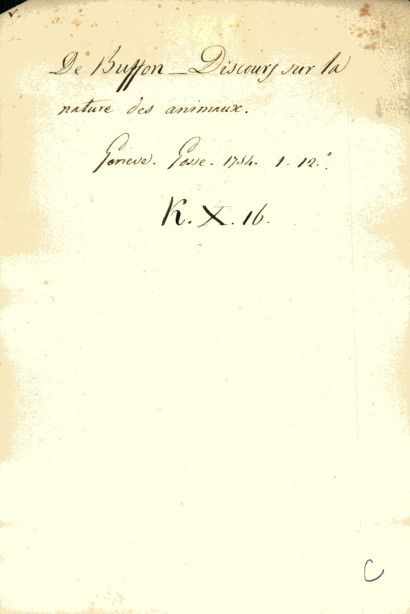 De Buffon_Discours sur la
nature des animaux.
Geneve. Gosse. 1754. 1. 12.°
K. X. 16.
C